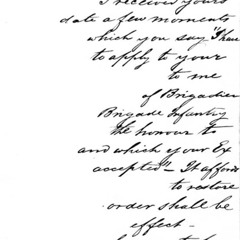 I received yours
date a few moments
which you say "I have
to apply to your
to me
of Brigadier
Brigade Infantry
the honour to
and which your Ex
accepted" - It affords
to restore
order shall be
effect -